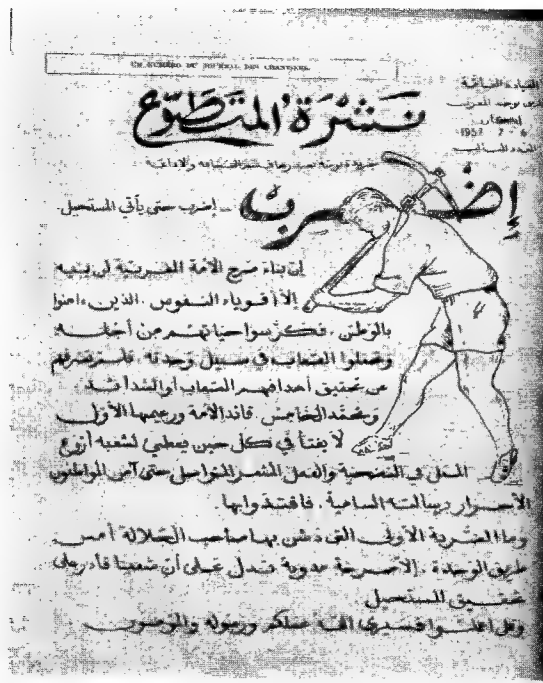 UN NUMÉRO DU JOURNAL DES CHANTIERS
نشرة المتطوع
طريق وحدة المغرب
1957 - 7 - 6
جريدة يومية تصدرها
إضرب
إضرب حتى يأتي المستحيل
إن بناء صرح الأمة المغربية لن يبنيه
إلا أقوياء النفوس . الذين ءامنوا
بالوطن . فكرسوا حياتهم من أجله
وتحملوا الصعاب في سبيل وحدته
عن تحقيق أهدافهم الصعاب أو الشدائد
ومحمد الخامس . قائد الأمة وزعيمها الأول
لا يفتأ في كل حين يعطي لشعبه أروع
المثل في التضحية والعمل المثمر المتواصل حتى آمن المواطنون
الأحرار برسالته السامية . فاقتدوا بها.
وما الضربة الأولى التي دشن بها صاحب الجلالة أمس
طريق الوحدة . إلا صرخة مدوية تدل على أن شعبنا قادر على
تحقيق المستحيل
وقل اعملوا فسيرى الله عملكم ورسوله والمؤمنون